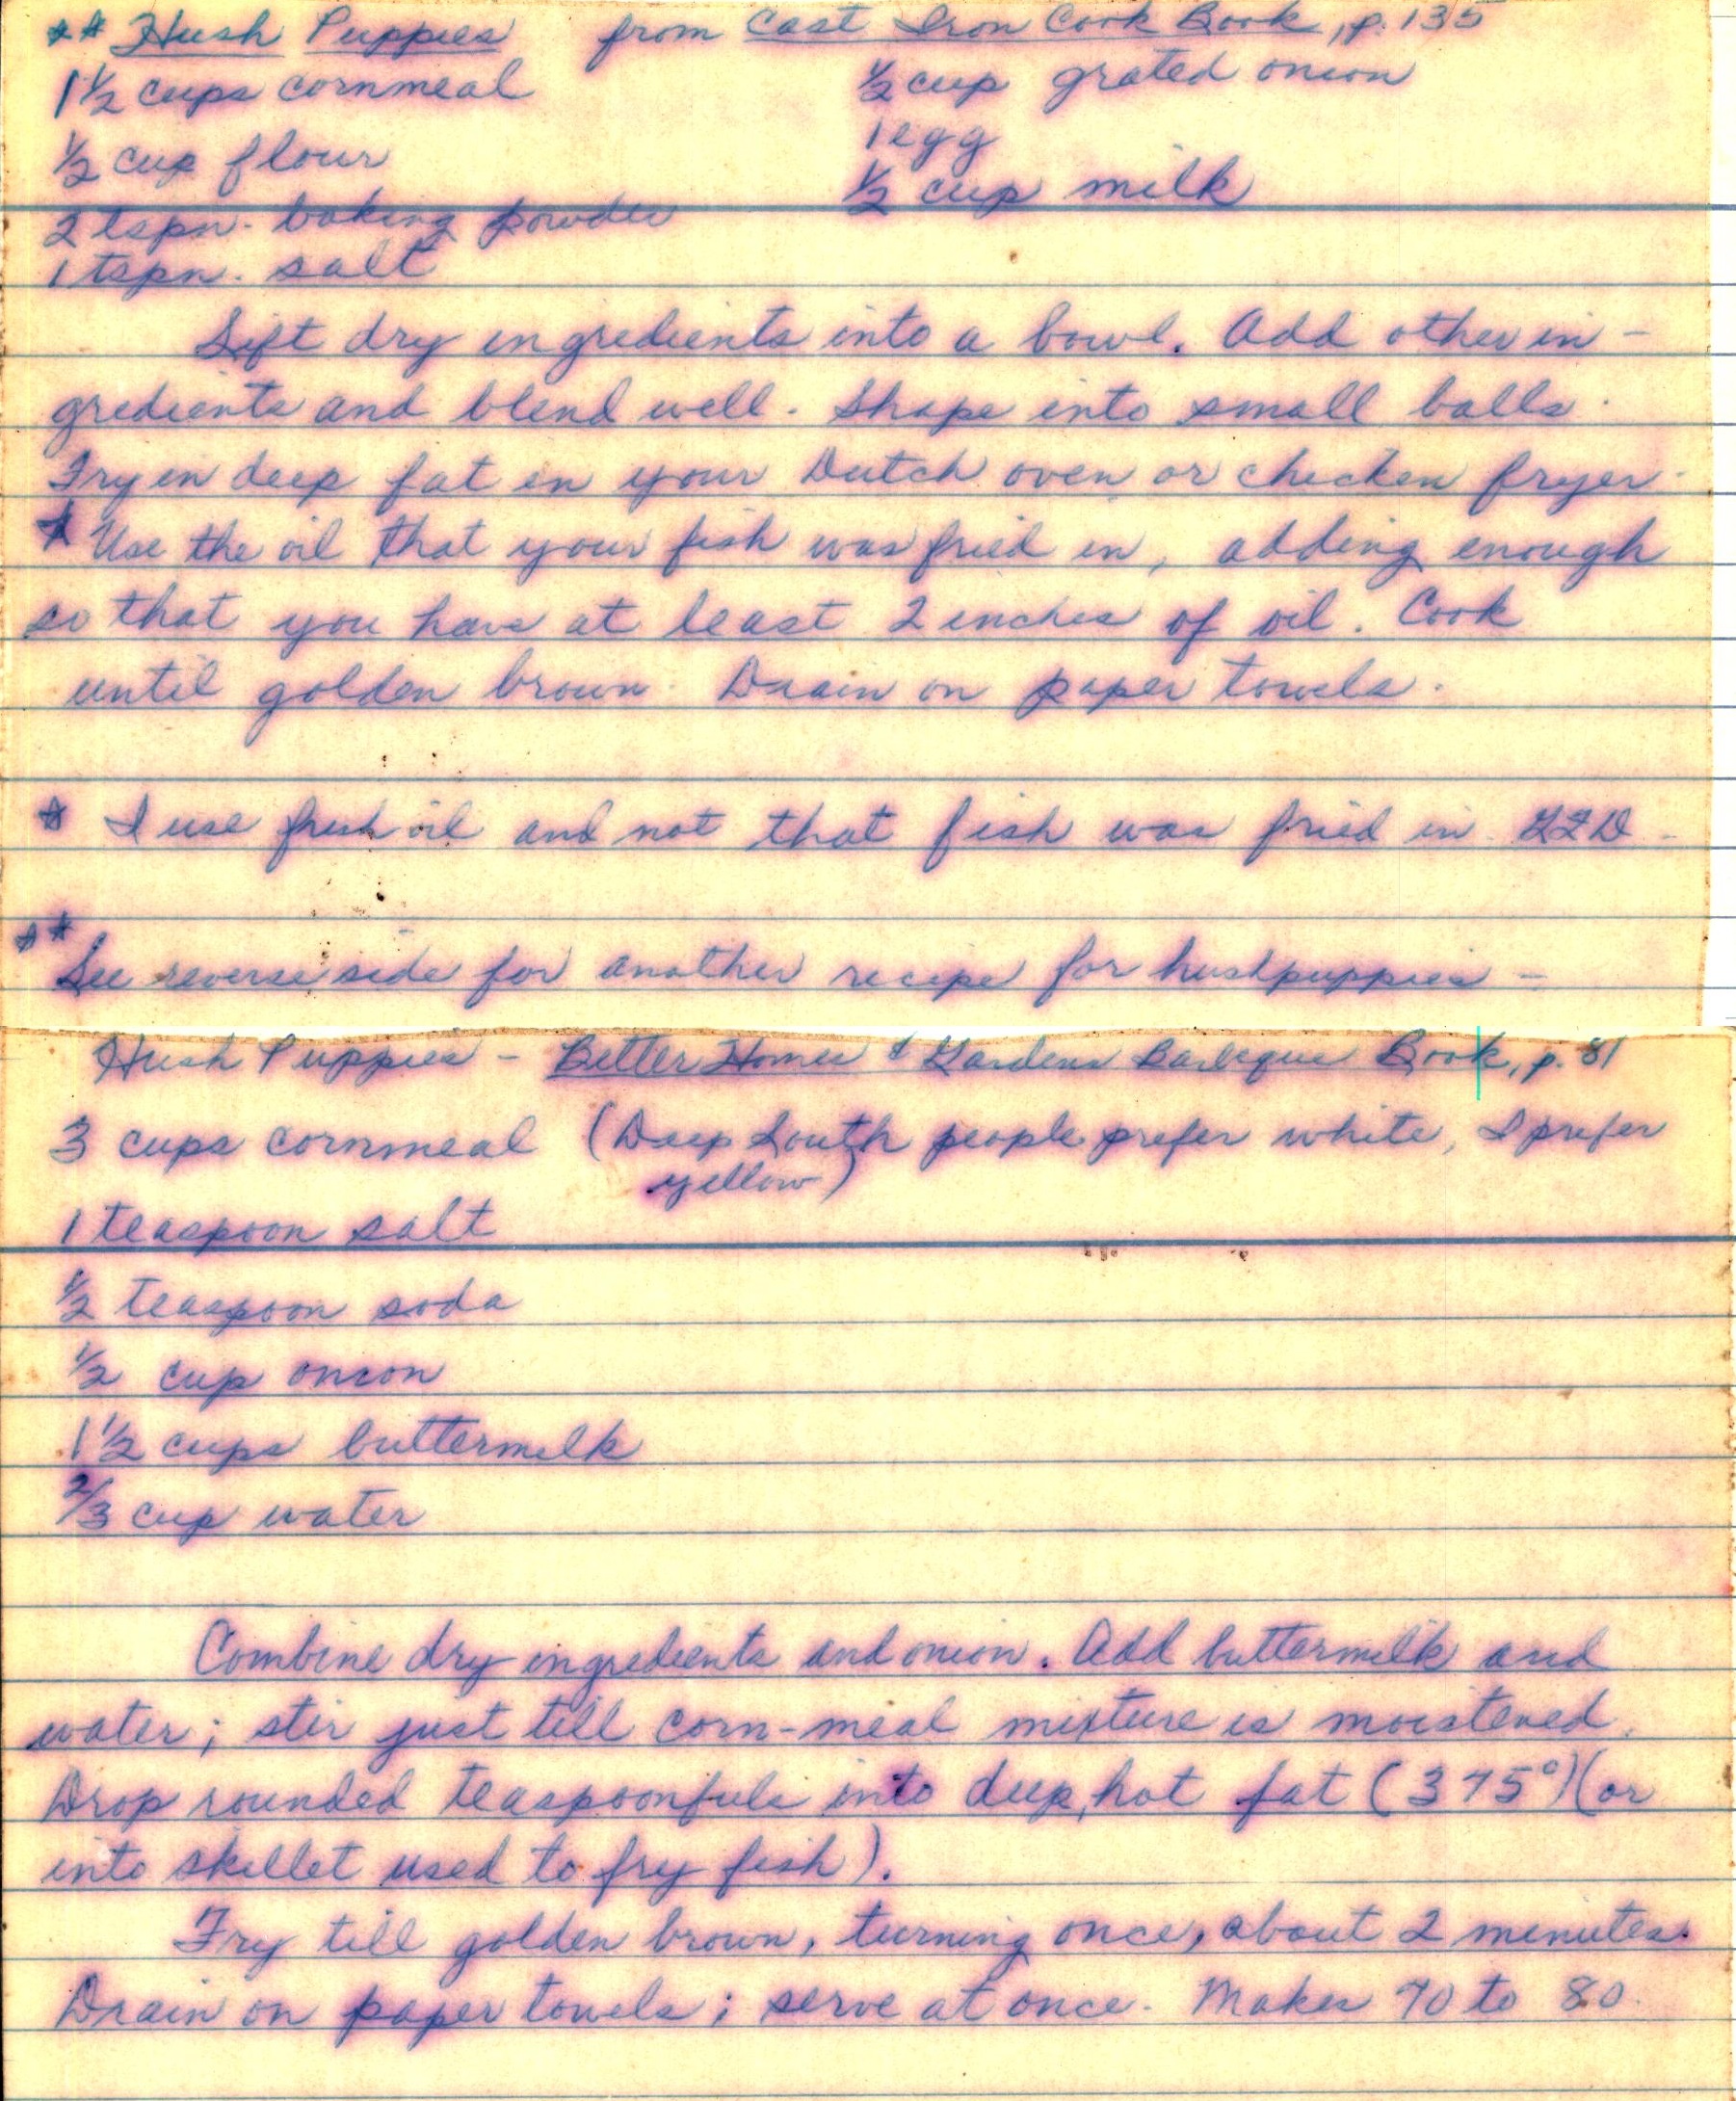 ** Hush Puppies from Cast Iron Cook Book, p. 135
1 1/2 cups cornmeal 1/2 cup grated onion
1/2 cup flour 1 egg
2 tspn. baking powder 1/2 cup milk
1 tspn. salt
Sift dry ingredients into a bowl. Add other in-
gredients and blend well. Shape into small balls.
Fry in deep fat in your Dutch oven or chicken fryer.
* Use the oil that your fish was fried in, adding enough
so that you have at least 2 inches of oil. Cook
until golden brown. Drain on paper towels.
* I use fresh oil and not that fish was fried in
**
See reverse side for another recipe for hushpuppies -
Hush Puppies - Better Homes & Gardens Barbeque Book, p. 81
3 cups cornmeal (Deep South people prefer white, I prefer
yellow)
1 teaspoon salt
1/2 teaspoon soda
1/2 cup onion
1 1/2 cups buttermilk
2/3 cup water
Combine dry ingredients and onion. Add buttermilk and
water; stir just till corn-meal mixture is moistened.
Drop rounded teaspoonfuls into deep, hot fat (375°) (or
into skillet used to fry fish).
Fry till golden brown, turning once, about 2 minutes.
Drain on paper towels; serve at once. Makes 70 to 80.